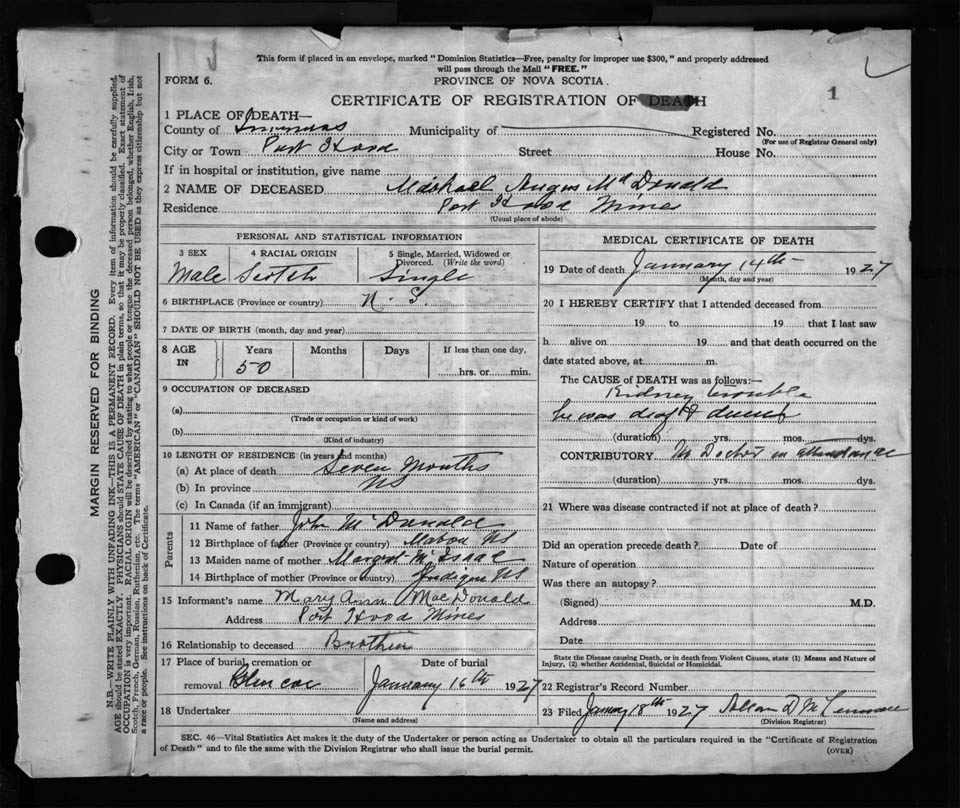 This form if placed in an envelope, marked "Dominion Statistics—Free, penalty for improper use $300," and properly addressed
will pass through the Mail "FREE."
FORM 6.
PROVINCE OF NOVA SCOTIA.
CERTIFICATE OF REGISTRATION OF DEATH
1
1 PLACE OF DEATH—
County of Inverness Municipality of Registered No.
(For use of Registrar General only)
City or Town Port Hood Street House No.
If in hospital or institution, give name
2 NAME OF DECEASED Michael Angus McDonald
Residence Port Hood Mines
(Usual place of abode)
PERSONAL AND STATISTICAL INFORMATION
3 SEX
Male
4 RACIAL ORIGIN
Scotch
5 Single, Married, Widowed or
Divorced. (Write the word)
Single
6 BIRTHPLACE (Province or country) N. S
7 DATE OF BIRTH (month, day and year)
8 AGE IN
Years
50
Months
Days
If less than one day,
hrs. or min.
9 OCCUPATION OF DECEASED
(a)
(Trade or occupation or kind of work)
(b)
(Kind of industry)
10 LENGTH OF RESIDENCE (in years and months)
(a) At place of death Seven Months
(b) In province NS
(c) In Canada (if an immigrant)
Parents
11 Name of father John McDonald
12 Birthplace of father (Province or country) Mabou NS
13 Maiden name of mother Margret McIsaac
14 Birthplace of mother (Province or country) NS
15 Informant's name Mary Ann MacDonald
Address Port Hood Mines
16 Relationship to deceased Brother
17 Place of burial, cremation or
removal Glencoe
Date of burial
January 16th 1927
18 Undertaker
(Name and address)
MEDICAL CERTIFICATE OF DEATH
19 Date of death January 14th 1927
(Month, day and year)
20 I HEREBY CERTIFY that I attended deceased from
19 to 19 that I last saw
h alive on 19 and that death occurred on the
date stated above, at m.
The CAUSE of DEATH was as follows:—
Kidney trouble
he was deaf & dumb
(duration) yrs. mos. dys.
CONTRIBUTORY No Doctor in attendance
(duration) yrs. mos. dys.
21 Where was disease contracted if not at place of death?
Did an operation precede death? Date of
Nature of operation
Was there an autopsy?
(Signed) M.D.
Address
Date
State the Disease causing Death, or in death from Violent Causes, state (1) Means and Nature of
Injury, (2) whether Accidental, Suicidal or Homicidal.
22 Registrar's Record Number
23 Filed January 18th 1927 D
(Division Registrar)
SEC. 46—Vital Statistics Act makes it the duty of the Undertaker or person acting as Undertaker to obtain all the particulars required in the "Certificate of Registration
of Death" and to file the same with the Division Registrar who shall issue the burial permit.
(OVER)
MARGIN RESERVED FOR BINDING
N.B.—WRITE PLAINLY WITH UNFADING INK—THIS IS A PERMANENT RECORD. Every item of information should be carefully supplied.
AGE should be stated EXACTLY. PHYSICIANS should STATE CAUSE OF DEATH in plain terms, so that it may be properly classified. Exact statement of
OCCUPATION is very important. RACIAL ORIGIN will be described by stating to what people or tongue the deceased person belonged, whether English, Irish,
Scotch, French, German, Russian, Ruthenian, etc. The terms "AMERICAN" or "CANADIAN" SHOULD NOT BE USED as they express citizenship but not
a race or people. See instructions on back of Certificate.